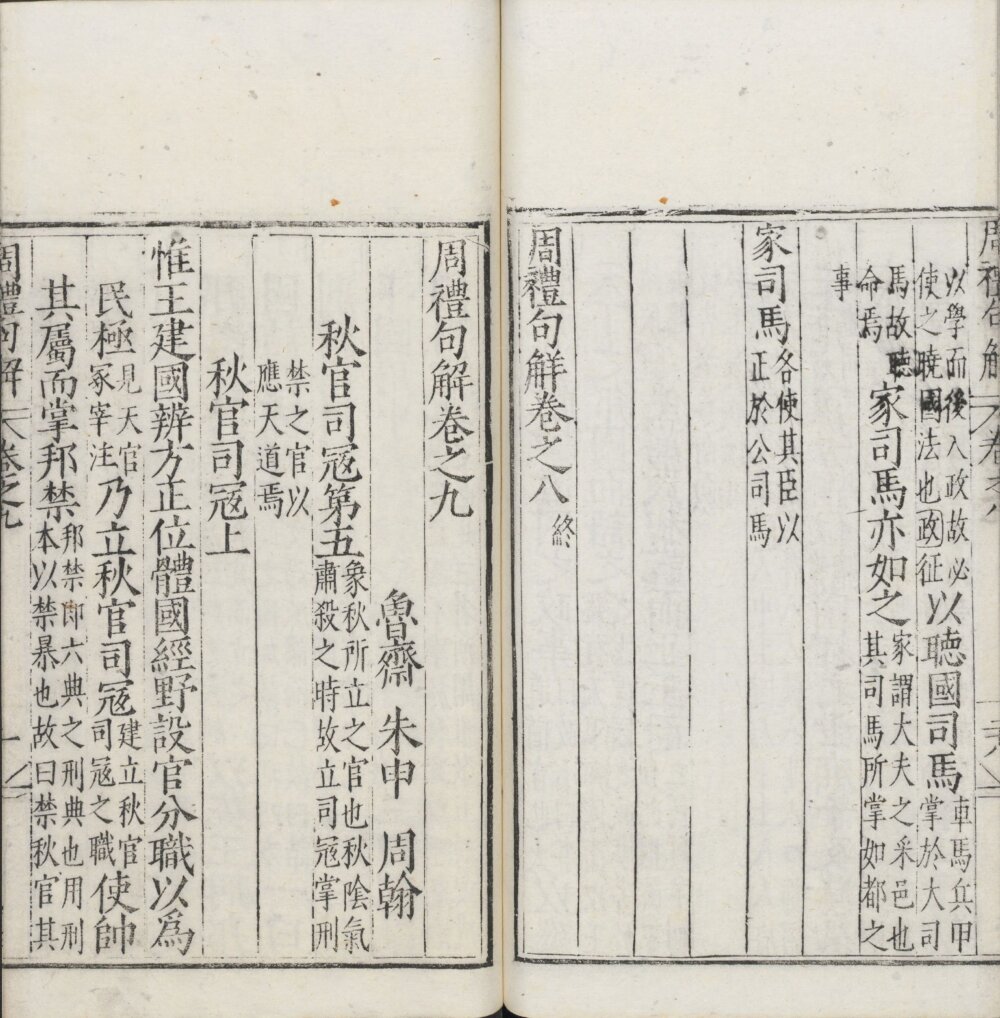 周禮句解 卷之八
以學而後入政故必使之曉國法也政征以聽國司馬車馬兵甲掌於大司
馬故聽命焉家司馬亦如之家謂大夫之采邑也其司馬所掌如都之
事
家司馬各使其臣以正於公司馬
周禮句解卷之八 終
周禮句解卷之九
魯齋 朱申 周翰
秋官司冦第五象秋所立之官也秋陰氣肅殺之時故立司冦掌刑
禁之官以應天道焉
秋官司冦上
惟王建國辨方正位體國經野設官分職以爲
民極見天官冢宰注乃立秋官司冦建立秋官司冦之職使帥
其屬而掌邦禁邦禁即六典之刑典也用刑本以禁暴也故曰禁秋官其
周禮句解 卷之九